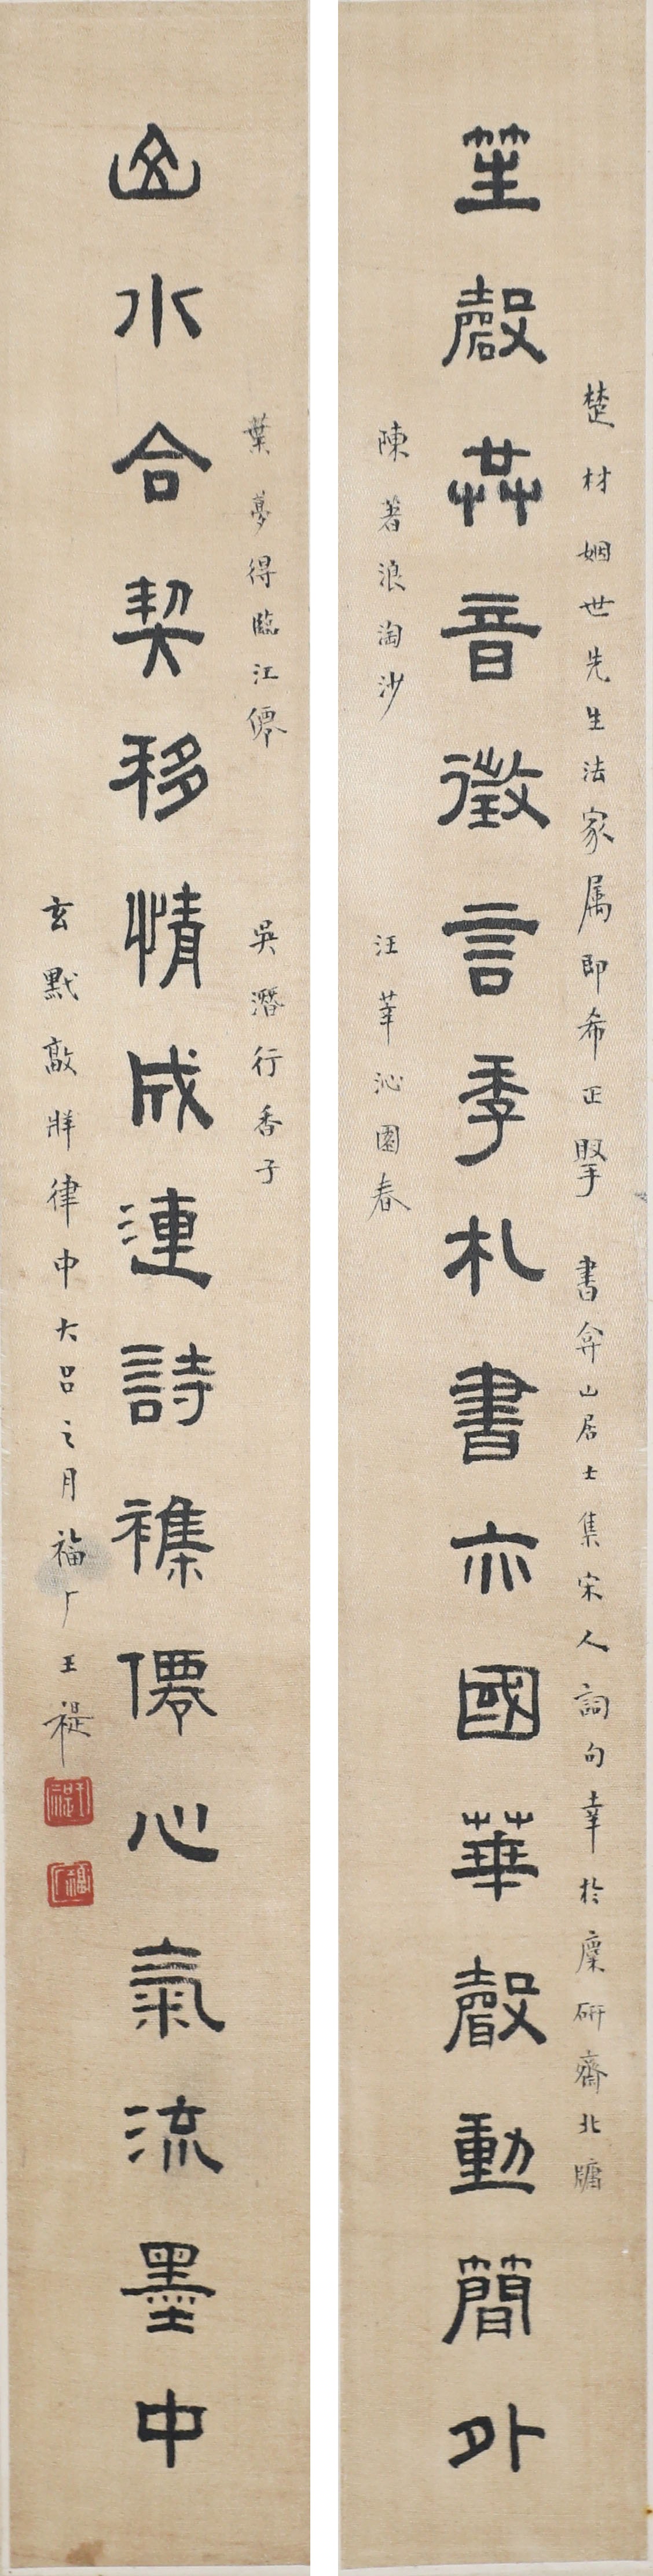 楚材姻世先生法家属即希正掔 書弇山居士集宋人詞句幸於麋研齋北牖
笙磬共音徵言季札書亦國華聲動簡外
陳著浪淘沙 汪莘沁園春
葉夢得臨江僊 吳潛行香子
山水合契移情成連詩襍僊心氣流墨中
玄黓敦牂律中大呂之月福厂王禔
王禔
福厂